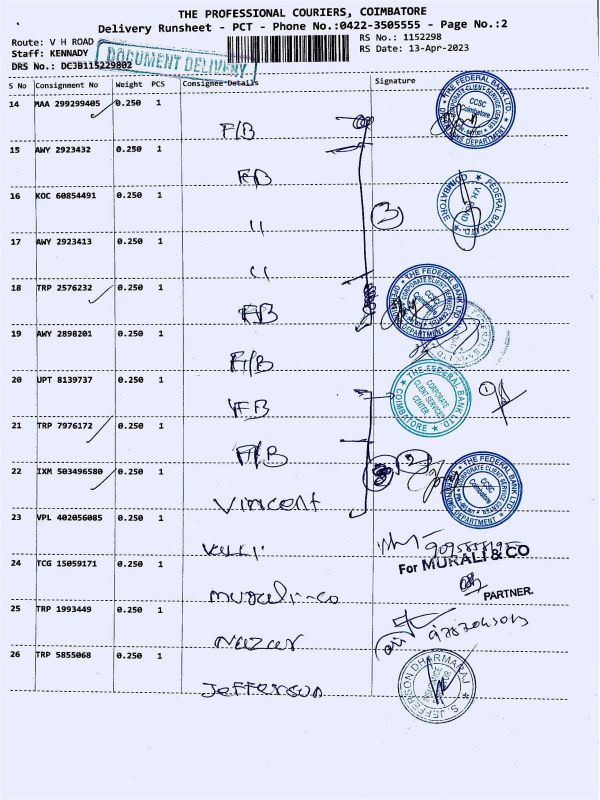 THE PROFESSIONAL COURIERS, COIMBATORE
Delivery Runsheet - PCT - Phone No.:0422-3505555 - Page No.:2
Route: V H ROAD
Staff: KENNADY
DRS No.: DCJB115229802
DOCUMENT DELIVERY
RS No.: 1152298
RS Date: 13-Apr-2023
S No Consignment No Weight PCS Consignee Details Signature
14 MAA 299299405 0.250 1
F/B
15 AWY 2923432 0.250 1
FB
16 KOC 60854491 0.250 1
"
17 AWY 2923413 0.250 1
"
18 TRP 2576232 0.250 1
FB
19 AWY 2898201 0.250 1
F/B
20 UPT 8139737 0.250 1
FB
21 TRP 7976172 0.250 1
F/B
22 IXM 503496580 0.250 1
Vincent
23 VPL 402056085 0.250 1
Valli
24 TCG 15059171 0.250 1
Murali-co
25 TRP 1993449 0.250 1
Nazar
26 TRP 5855068 0.250 1
Jefferson
THE FEDERAL BANK LTD.
CORPORATE CLIENT SERVICE
CCSC
Coimbatore
OPERATIONS DEPARTMENT
FEDERAL BANK LTD.
V.H. ROAD
COIMBATORE
3
THE FEDERAL BANK LTD.
CORPORATE CLIENT SERVICE
CCSC
OPERATIONS DEPARTMENT
THE FEDERAL BANK LTD.
CORPORATE
CLIENT SERVICE
CENTER
COIMBATORE
1
2
THE FEDERAL BANK LTD.
CORPORATE CLIENT SERVICE
CCSC
Coimbatore
OPERATIONS DEPARTMENT
For MURALI & CO
PARTNER.
S. JEFFERSON DHARMARAJ